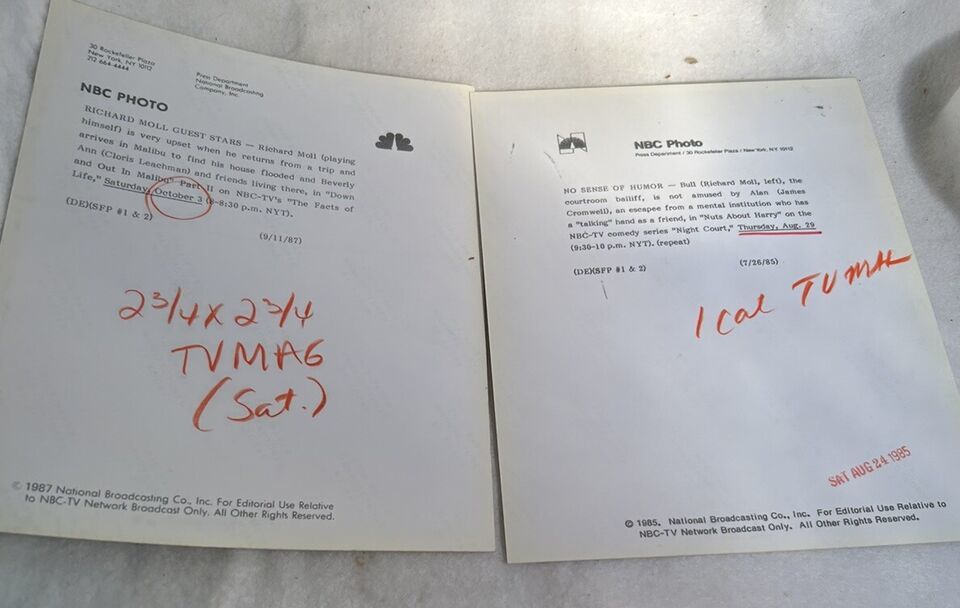 30 Rockefeller Plaza
New York, NY 10112
212 664-4444
Press Department
National Broadcasting
Company, Inc.
NBC PHOTO
RICHARD MOLL GUEST STARS — Richard Moll (playing
himself) is very upset when he returns from a trip and
arrives in Malibu to find his house flooded and Beverly
Ann (Cloris Leachman) and friends living there, in "Down
and Out In Malibu" Part II on NBC-TV's "The Facts of
Life," Saturday, October 3 (8-8:30 p.m. NYT).
(DE)(SFP #1 & 2)
(9/11/87)
2 3/4 X 2 3/4
TV MAG
(Sat.)
© 1987 National Broadcasting Co., Inc. For Editorial Use Relative
to NBC-TV Network Broadcast Only. All Other Rights Reserved.
NBC Photo
Press Department / 30 Rockefeller Plaza / New York, N.Y. 10112
NO SENSE OF HUMOR — Bull (Richard Moll, left), the
courtroom bailiff, is not amused by Alan (James
Cromwell), an escapee from a mental institution who has
a "talking" hand as a friend, in "Nuts About Harry" on the
NBC-TV comedy series "Night Court," Thursday, Aug. 29
(9:30-10 p.m. NYT). (repeat)
(DE)(SFP #1 & 2)
(7/26/85)
1 Col TV MAG
SAT AUG 24 1985
© 1985. National Broadcasting Co., Inc. For Editorial Use Relative to
NBC-TV Network Broadcast Only. All Other Rights Reserved.